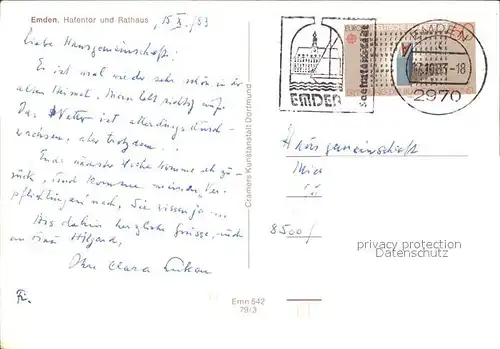 Emden, Hafentor und Rathaus
15/X./83
Liebe Hausgemeinschaft!
Es ist mal wieder sehr schön in der
alten Heimat. Man lebt richtig auf.
Das Wetter ist allerdings durch-
wachsen, aber trotzdem..!
Ende nächster Woche komme ich zu-
rück, und komme meinen Ver-
pflichtungen nach, Sie wissen ja ...
Bis dahin herzliche Grüsse, auch
an Frau Hilgard,
Ihre Clara
Cramers Kunstanstalt Dortmund
Emn 542
79/3
EMDEN
Seehafenstadt
EUROPA
EMDEN
-18
2970
Hausgemeinschaft
8500
privacy protection
Datenschutz